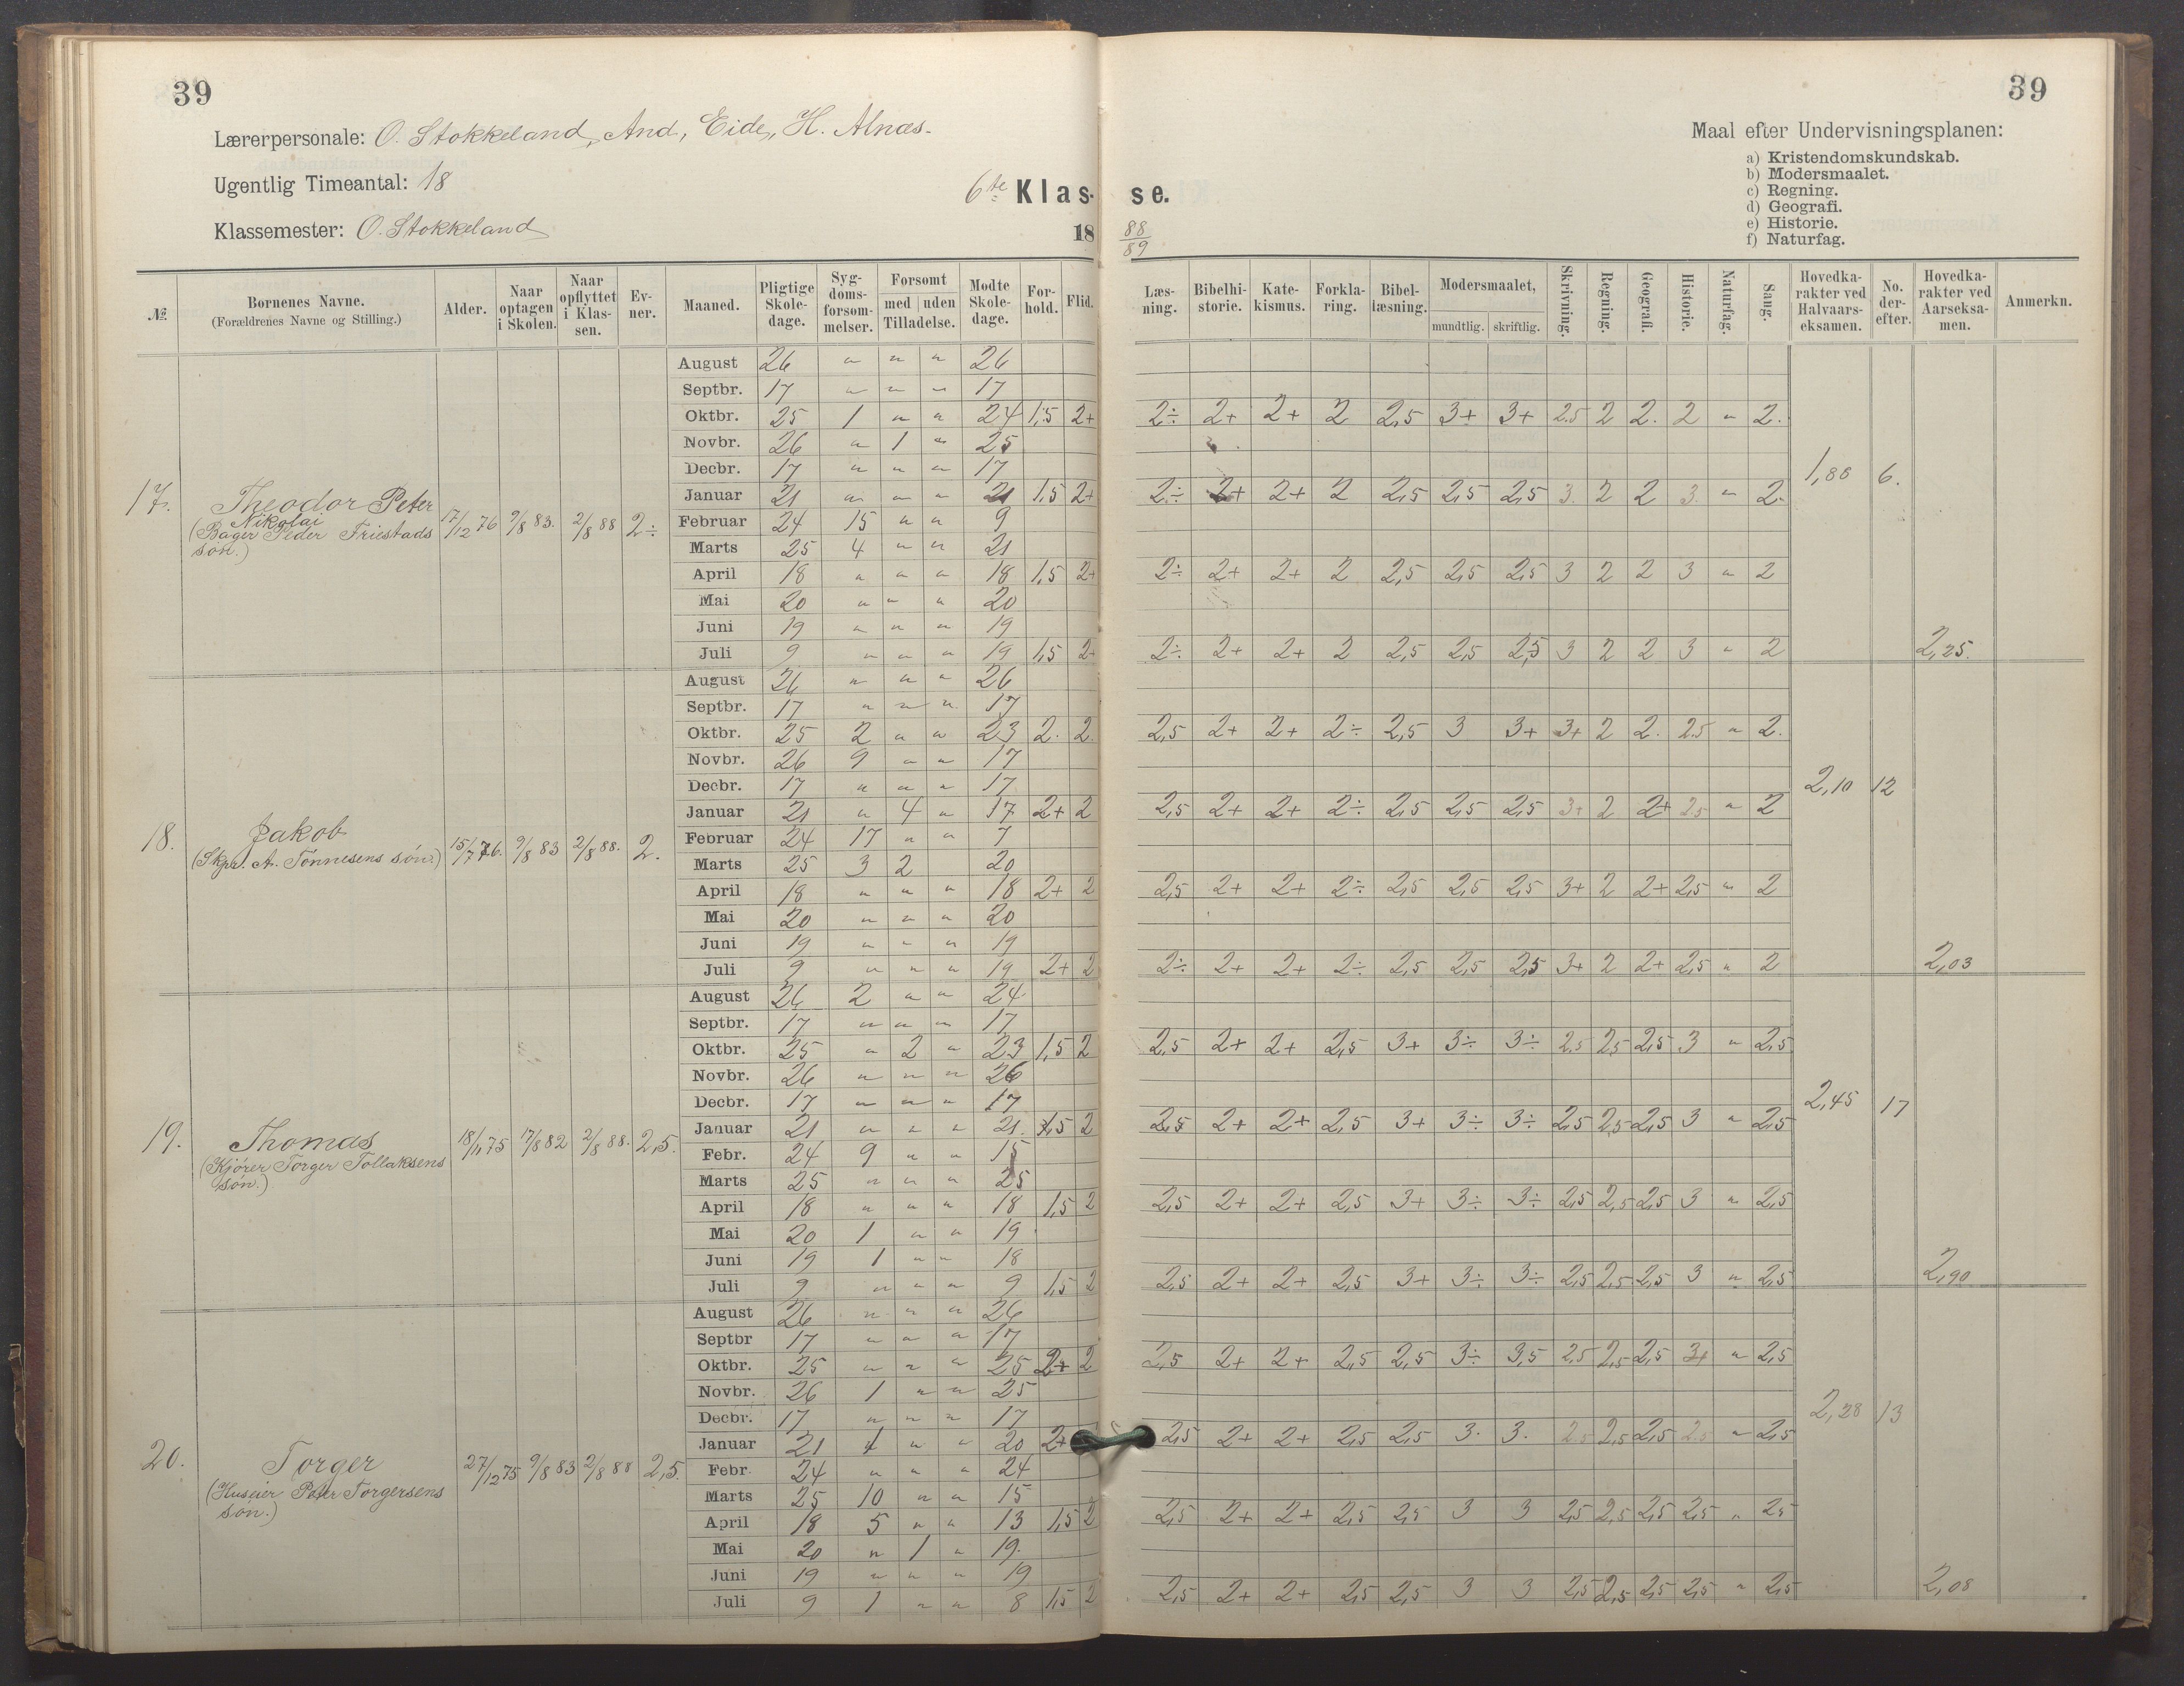 39
39
Lærerpersonale: O. Stokkeland, And. Eide, H. Alnæs.
Maal efter Undervisningsplanen:
a) Kristendomskundskab.
b) Modersmaalet.
c) Regning.
d) Geografi.
e) Historie.
f) Naturfag.
Ugentlig Timeantal: 18
6te Klasse.
Klassemester: O. Stokkeland
18 88/89
№ Børnenes Navne. (Forældrenes Navne og Stilling.) Alder. Naar optagen i Skolen. Naar opflyttet i Klassen. Evner. Maaned. Pligtige Skoledage. Sygdomsforsømmelser. Forsømt med uden Tilladelse. Mødte Skoledage. Forhold. Flid. Læsning. Bibelhistorie. Katekismus. Forklaring. Bibellæsning. Modersmaalet, mundtlig. skriftlig. Skrivning. Regning. Geografi. Historie. Naturfag. Sang. Hovedkarakter ved Halvaarseksamen. No. derefter. Hovedkarakter ved Aarseksamen. Anmerkn.
17. Theodor Peter Nikolai
(Bager Peder Friestads søn.)
17/12 76 9/8 83. 2/8 88 2÷
August 26 " " " 26
Septbr. 17 " " " 17
Oktbr. 25 1 " " 24 1,5 2+ 2÷ 2+ 2+ 2 2,5 3+ 3+ 2.5 2 2. 2 " 2.
Novbr. 26 " 1 " 25
Decbr. 17 " " " 17
1,88 6.
Januar 21 " " " 21 1,5 2+ 2÷ 2+ 2+ 2 2,5 2,5 2,5 3. 2 2 3. " 2.
Februar 24 15 " " 9
Marts 25 4 " " 21
April 18 " " " 18 1,5 2+ 2÷ 2+ 2+ 2 2,5 2,5 2,5 3 2 2 3 " 2
Mai 20 " " " 20
Juni 19 " " " 19
Juli 9 " " " 19 1,5 2+ 2÷ 2+ 2+ 2 2,5 2,5 2,5 3 2 2 3 " 2 2,25.
18. Jakob
(Skpr. A. Tønnesens søn.)
15/7 76. 9/8 83 2/8 88. 2.
August 26 " " " 26
Septbr. 17 " " " 17
Oktbr. 25 2 " " 23 2. 2. 2,5 2+ 2+ 2÷ 2,5 3 3+ 3+ 2 2. 2.5 " 2.
Novbr. 26 9 " " 17
Decbr. 17 " " " 17
2,10 12
Januar 21 " 4 " 17 2+ 2 2,5 2+ 2+ 2÷ 2,5 2,5 2,5 3+ 2 2+ 2.5 " 2
Februar 24 17 " " 7
Marts 25 3 2 20
April 18 " " " 18 2+ 2 2,5 2+ 2+ 2÷ 2,5 2,5 2,5 3+ 2 2+ 2,5 " 2
Mai 20 " " " 20
Juni 19 " " " 19
Juli 9 " " " 19 2+ 2 2÷ 2+ 2+ 2÷ 2,5 2,5 2,5 3+ 2 2+ 2,5 " 2 2,03
19. Thomas
(Kjører Torger Tollaksens søn.)
18/11 75 17/8 82 2/8 88. 2,5.
August 26 2 " " 24
Septbr. 17 " " " 17
Oktbr. 25 " 2 " 23 1,5 2 2,5 2+ 2+ 2,5 3+ 3÷ 3÷ 2.5 2,5 2,5 3 " 2,5
Novbr. 26 " " " 26
Decbr. 17 " " " 17
2,45 17
Januar 21 " " " 21. 1,5 2 2,5 2+ 2+ 2,5 3+ 3÷ 3÷ 2,5 2,5 2,5 3 " 2,5
Febr. 24 9 " " 15
Marts 25 " " " 25
April 18 " " " 18 1,5 2 2,5 2+ 2+ 2,5 3+ 3÷ 3÷ 2,5 2,5 2,5 3 " 2,5
Mai 20 1 " " 19
Juni 19 1 " " 18
Juli 9 " " " 9 1,5 2 2,5 2+ 2+ 2,5 3+ 3÷ 3÷ 2,5 2,5 2,5 3 " 2,5 2,90
20. Torger
(Huseier Peter Torgersens søn.)
27/12 75 9/8 83 2/8 88 2,5.
August 26 " " " 26
Septbr 17 " " " 17
Oktbr. 25 " " " 25 2+ 2 2,5 2+ 2+ 2,5 2,5 3÷ 3,5 2,5 2,5 2,5 3+ " 2,5
Novbr. 26 1 " " 25
Decbr. 17 " " " 17
2,28 13
Januar 21 1 " " 20 2+ 2,5 2+ 2+ 2,5 2,5 3. 3. 2.5 2,5 2,5 2.5 " 2,5
Febr. 24 " " " 24
Marts 25 10 " " 15
April 18 5 " " 13 1,5 2 2,5 2+ 2+ 2,5 2,5 3 3 2,5 2,5 2,5 2,5 " 2,5
Mai 20 " 1 " 19.
Juni 19 " " " 19
Juli 9 1 " " 8 1,5 2 2,5 2+ 2+ 2,5 2,5 3 3 2,5 2,5 2,5 2,5 " 2,5 2,08